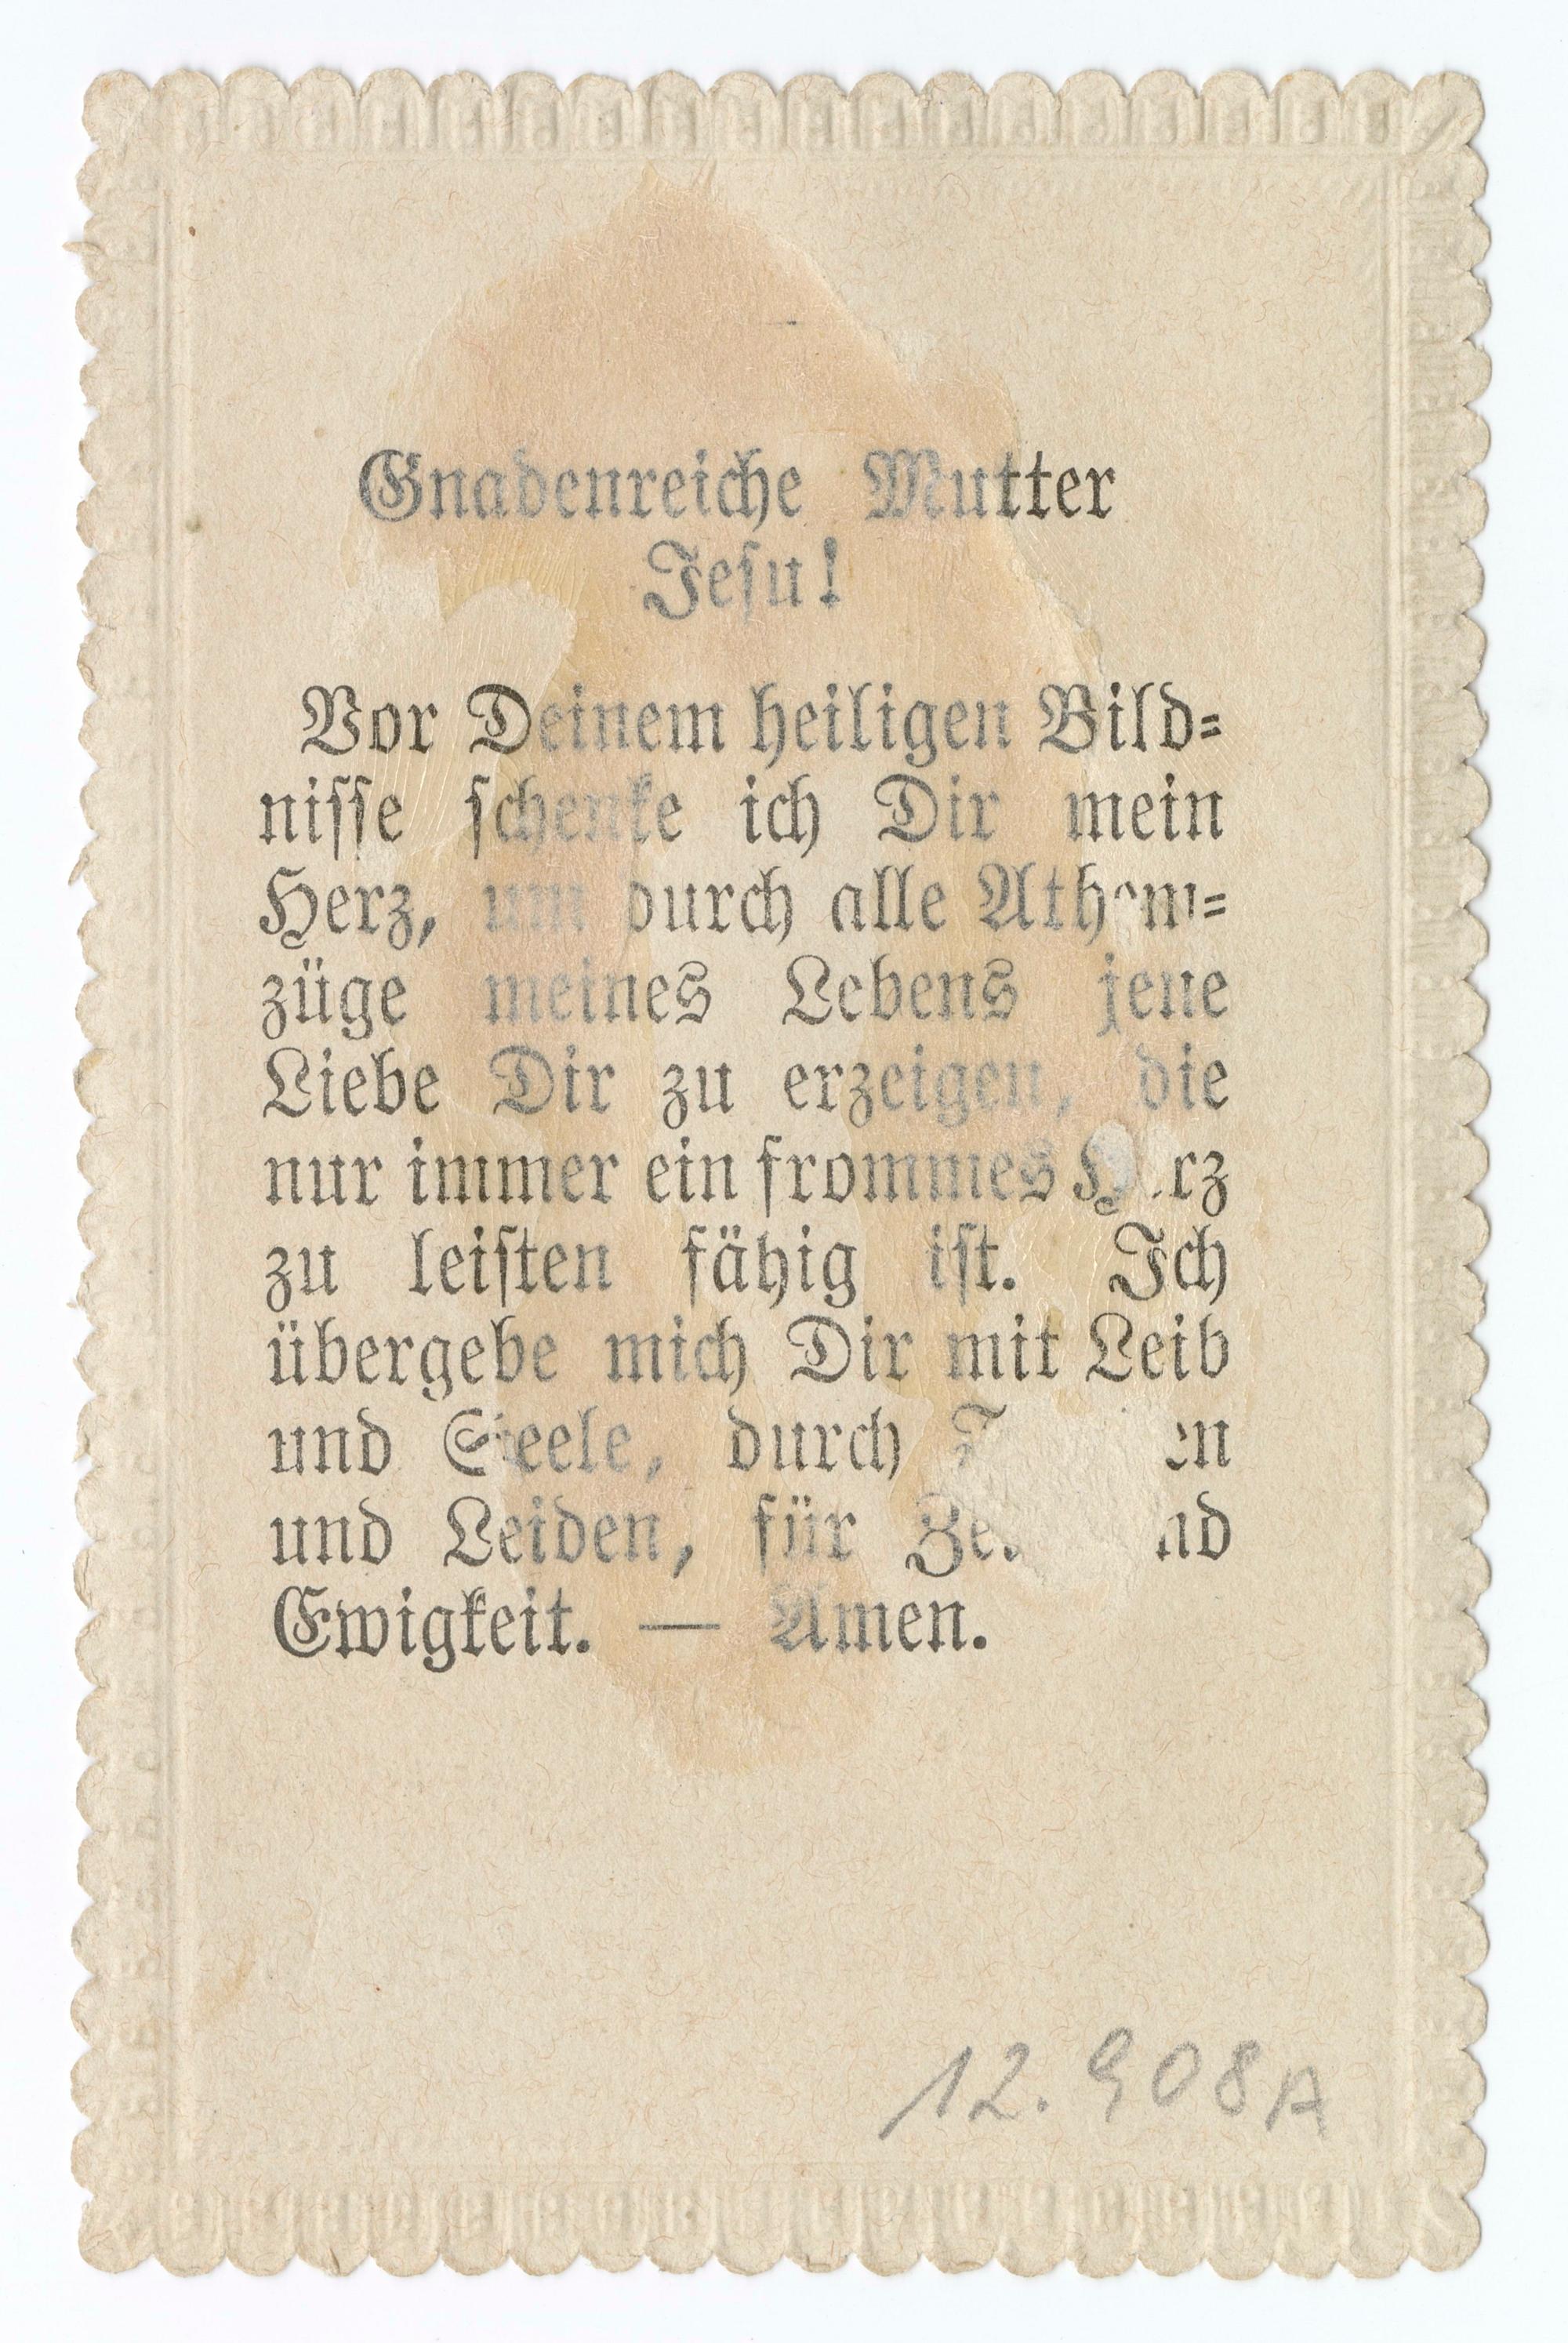 Gnadenreiche Mutter
Jesu!
Vor Deinem heiligen Bild-
nisse schenke ich Dir mein
Herz, um durch alle Athem-
züge meines Lebens jene
Liebe Dir zu erzeigen, die
nur immer ein frommes Herz
zu leisten fähig ist. Ich
übergebe mich Dir mit Leib
und Seele, durch
und Leiden, für Zeit und
Ewigkeit. — Amen.
12.908A